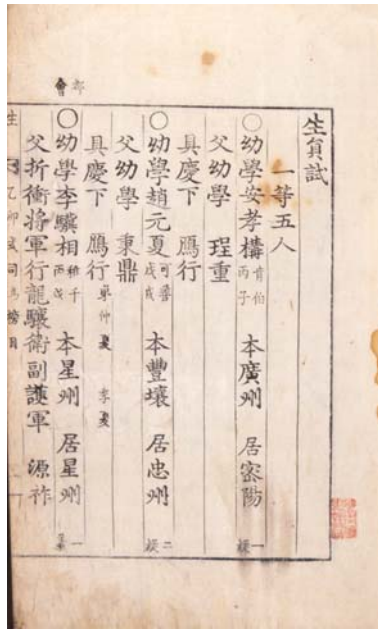 生員試
一等五人
○幼學安孝構 肯伯 丙子 本廣州 居密陽
父幼學 珵重
具慶下 鴈行
○幼學趙元夏 可善 戊戌 本豐壤 居忠州 二
父幼學 秉鼎
具慶下 鴈行
○幼學李驥相 千 丙戌 本星州 居星州 一
父折衝將軍行龍驤衛副護軍 源祚